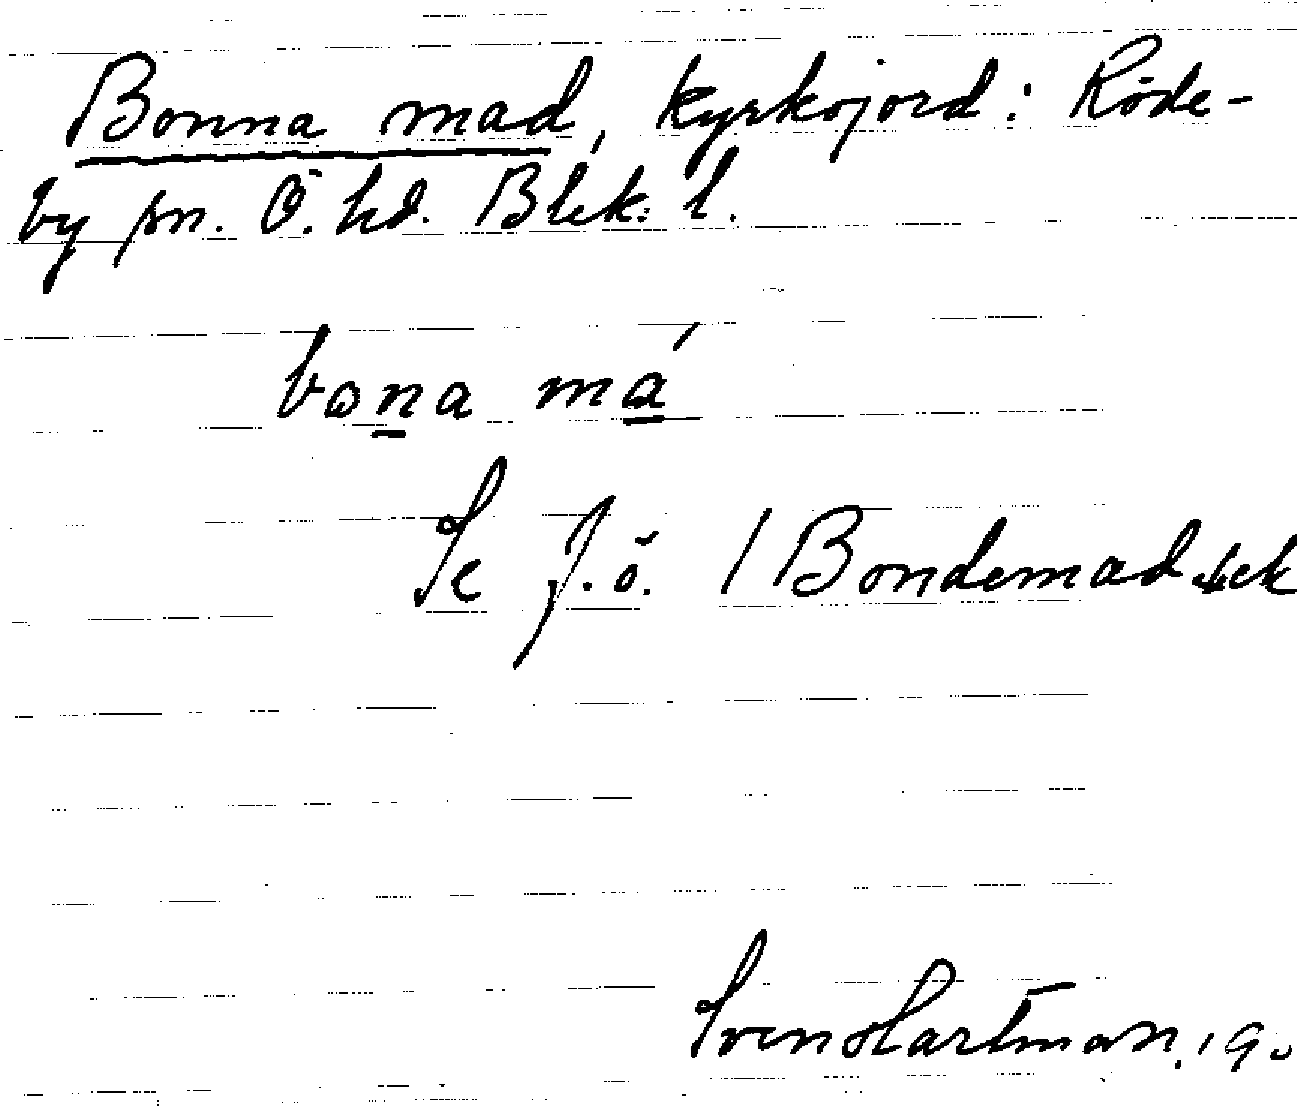 Bonna mad, kyrkojord: Röde-
by sn. Ö. hd. Blek. l.
bona má
Se J.ö. / Bondemad
Sven Hartman. 190